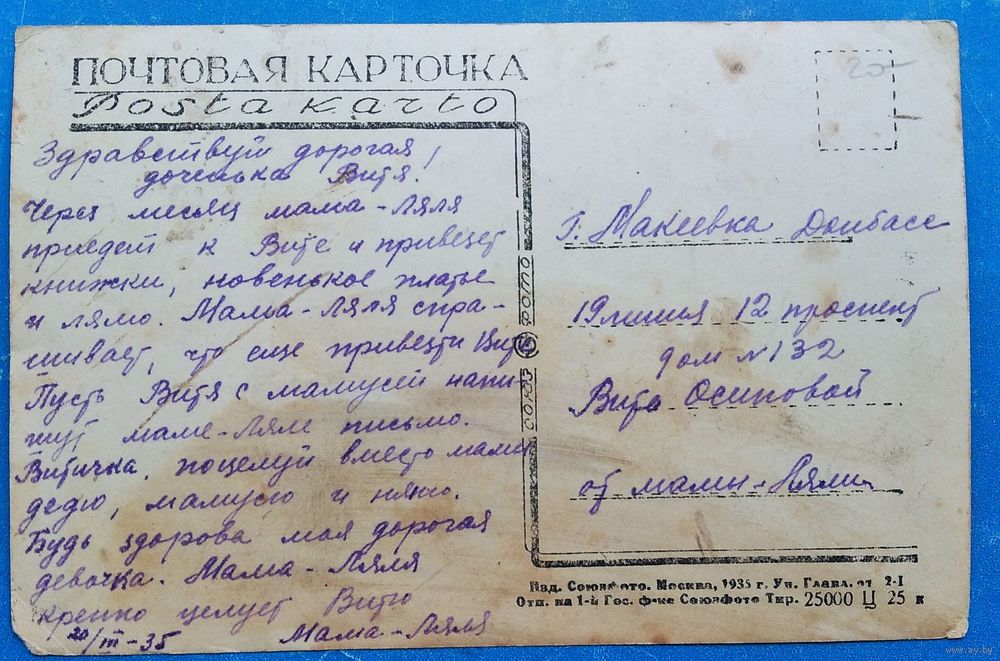 ПОЧТОВАЯ КАРТОЧКА
Posta karto
20-
Здравствуй дорогая
доченька Витя!
Через месяц мама-Ляля
приедет к Вите и привезет
книжки, новенькое платье
и лямо. Мама-Ляля спра-
шивает, что еще привезти Вите
Пусть Витя с мамусей напи-
шут маме-Ляле письмо.
Витичка, поцелуй вместо мамы
дедю, мамусю и няню.
Будь здорова моя дорогая
девочка. Мама-Ляля
крепко целует Витю
Мама-Ляля
20/III-35
СОЮЗ ФОТО
г. Макеевка Донбасс
19 линия 12 проспект
дом N 132
Вите Осиповой
от мамы-Ляли
Изд. Союзфото. Москва, 1935 г. Уп. Главл. от 2-I
Отп. на 1-й Гос. ф-ке Союзфото Тир. 25000 Ц 25 к
www.ay.by